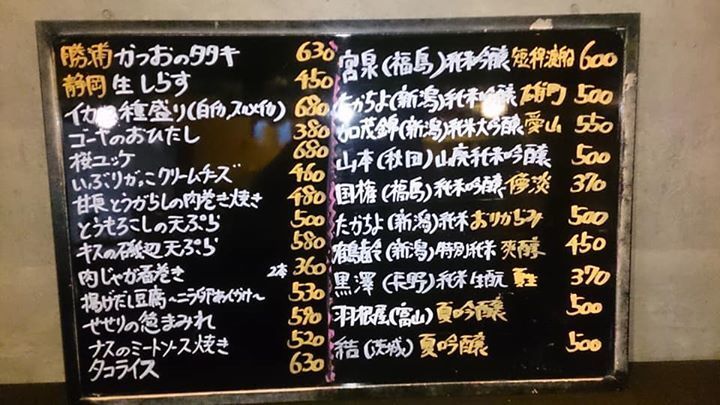 勝浦 かつおのタタキ 630
静岡 生しらす 450
イカ 種盛り(白イカ、スルメイカ) 680
ゴーヤのおひたし 380
桜ユッケ 680
いぶりがっこクリームチーズ 460
甘長とうがらしの肉巻き焼き 480
とうもろこしの天ぷら 500
キスの磯辺天ぷら 580
肉じゃが春巻き 2本 360
揚げだし豆腐 530
せせりの葱まみれ 590
ナスのミートソース焼き 520
タコライス 630
宮泉(福島)純米吟醸 短稈渡船 600
たかちよ(新潟)純米吟醸 雄町 500
加茂錦(新潟)純米大吟醸 愛山 550
山本(秋田)山廃純米吟醸 500
国権(福島)純米吟醸 370
たかちよ(新潟)純米 おりがらみ 500
鶴齢(新潟)特別純米 爽醇 450
黒澤(長野)純米生酛 夏生 370
羽根屋(富山)夏吟醸 500
結(茨城)夏吟醸 500